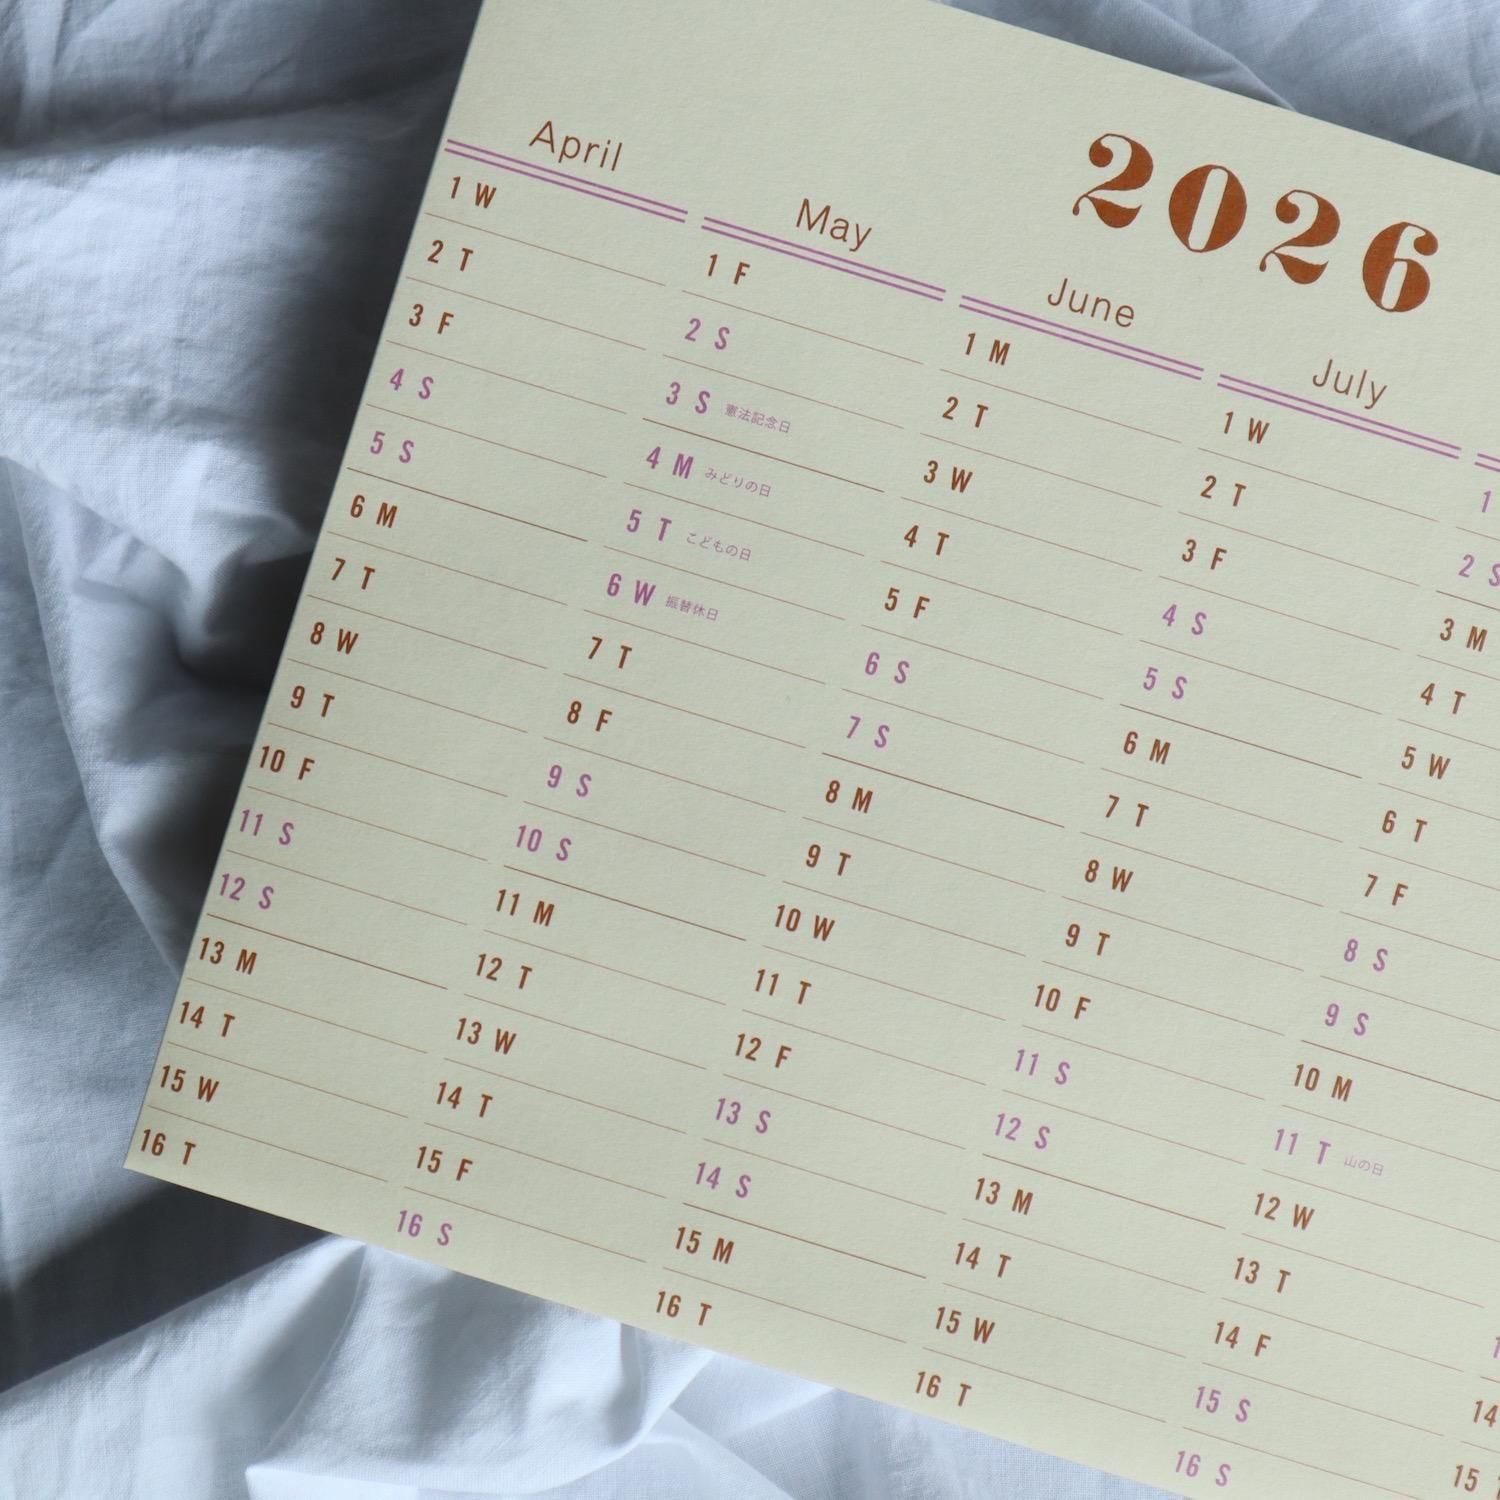 2026
April
1 W
2 T
3 F
4 S
5 S
6 M
7 T
8 W
9 T
10 F
11 S
12 S
13 M
14 T
15 W
16 T
May
1 F
2 S
3 S 憲法記念日
4 M みどりの日
5 T こどもの日
6 W 振替休日
7 T
8 F
9 S
10 S
11 M
12 T
13 W
14 T
15 F
16 S
June
1 M
2 T
3 W
4 T
5 F
6 S
7 S
8 M
9 T
10 W
11 T
12 F
13 S
14 S
15 M
16 T
July
1 W
2 T
3 F
4 S
5 S
6 M
7 T
8 W
9 T
10 F
11 S
12 S
13 M
14 T
15 W
16 T
1
2 S
3 M
4 T
5 W
6 T
7 F
8 S
9 S
10 M
11 T 山の日
12 W
13 T
14 F
15 S
16 S
14
15